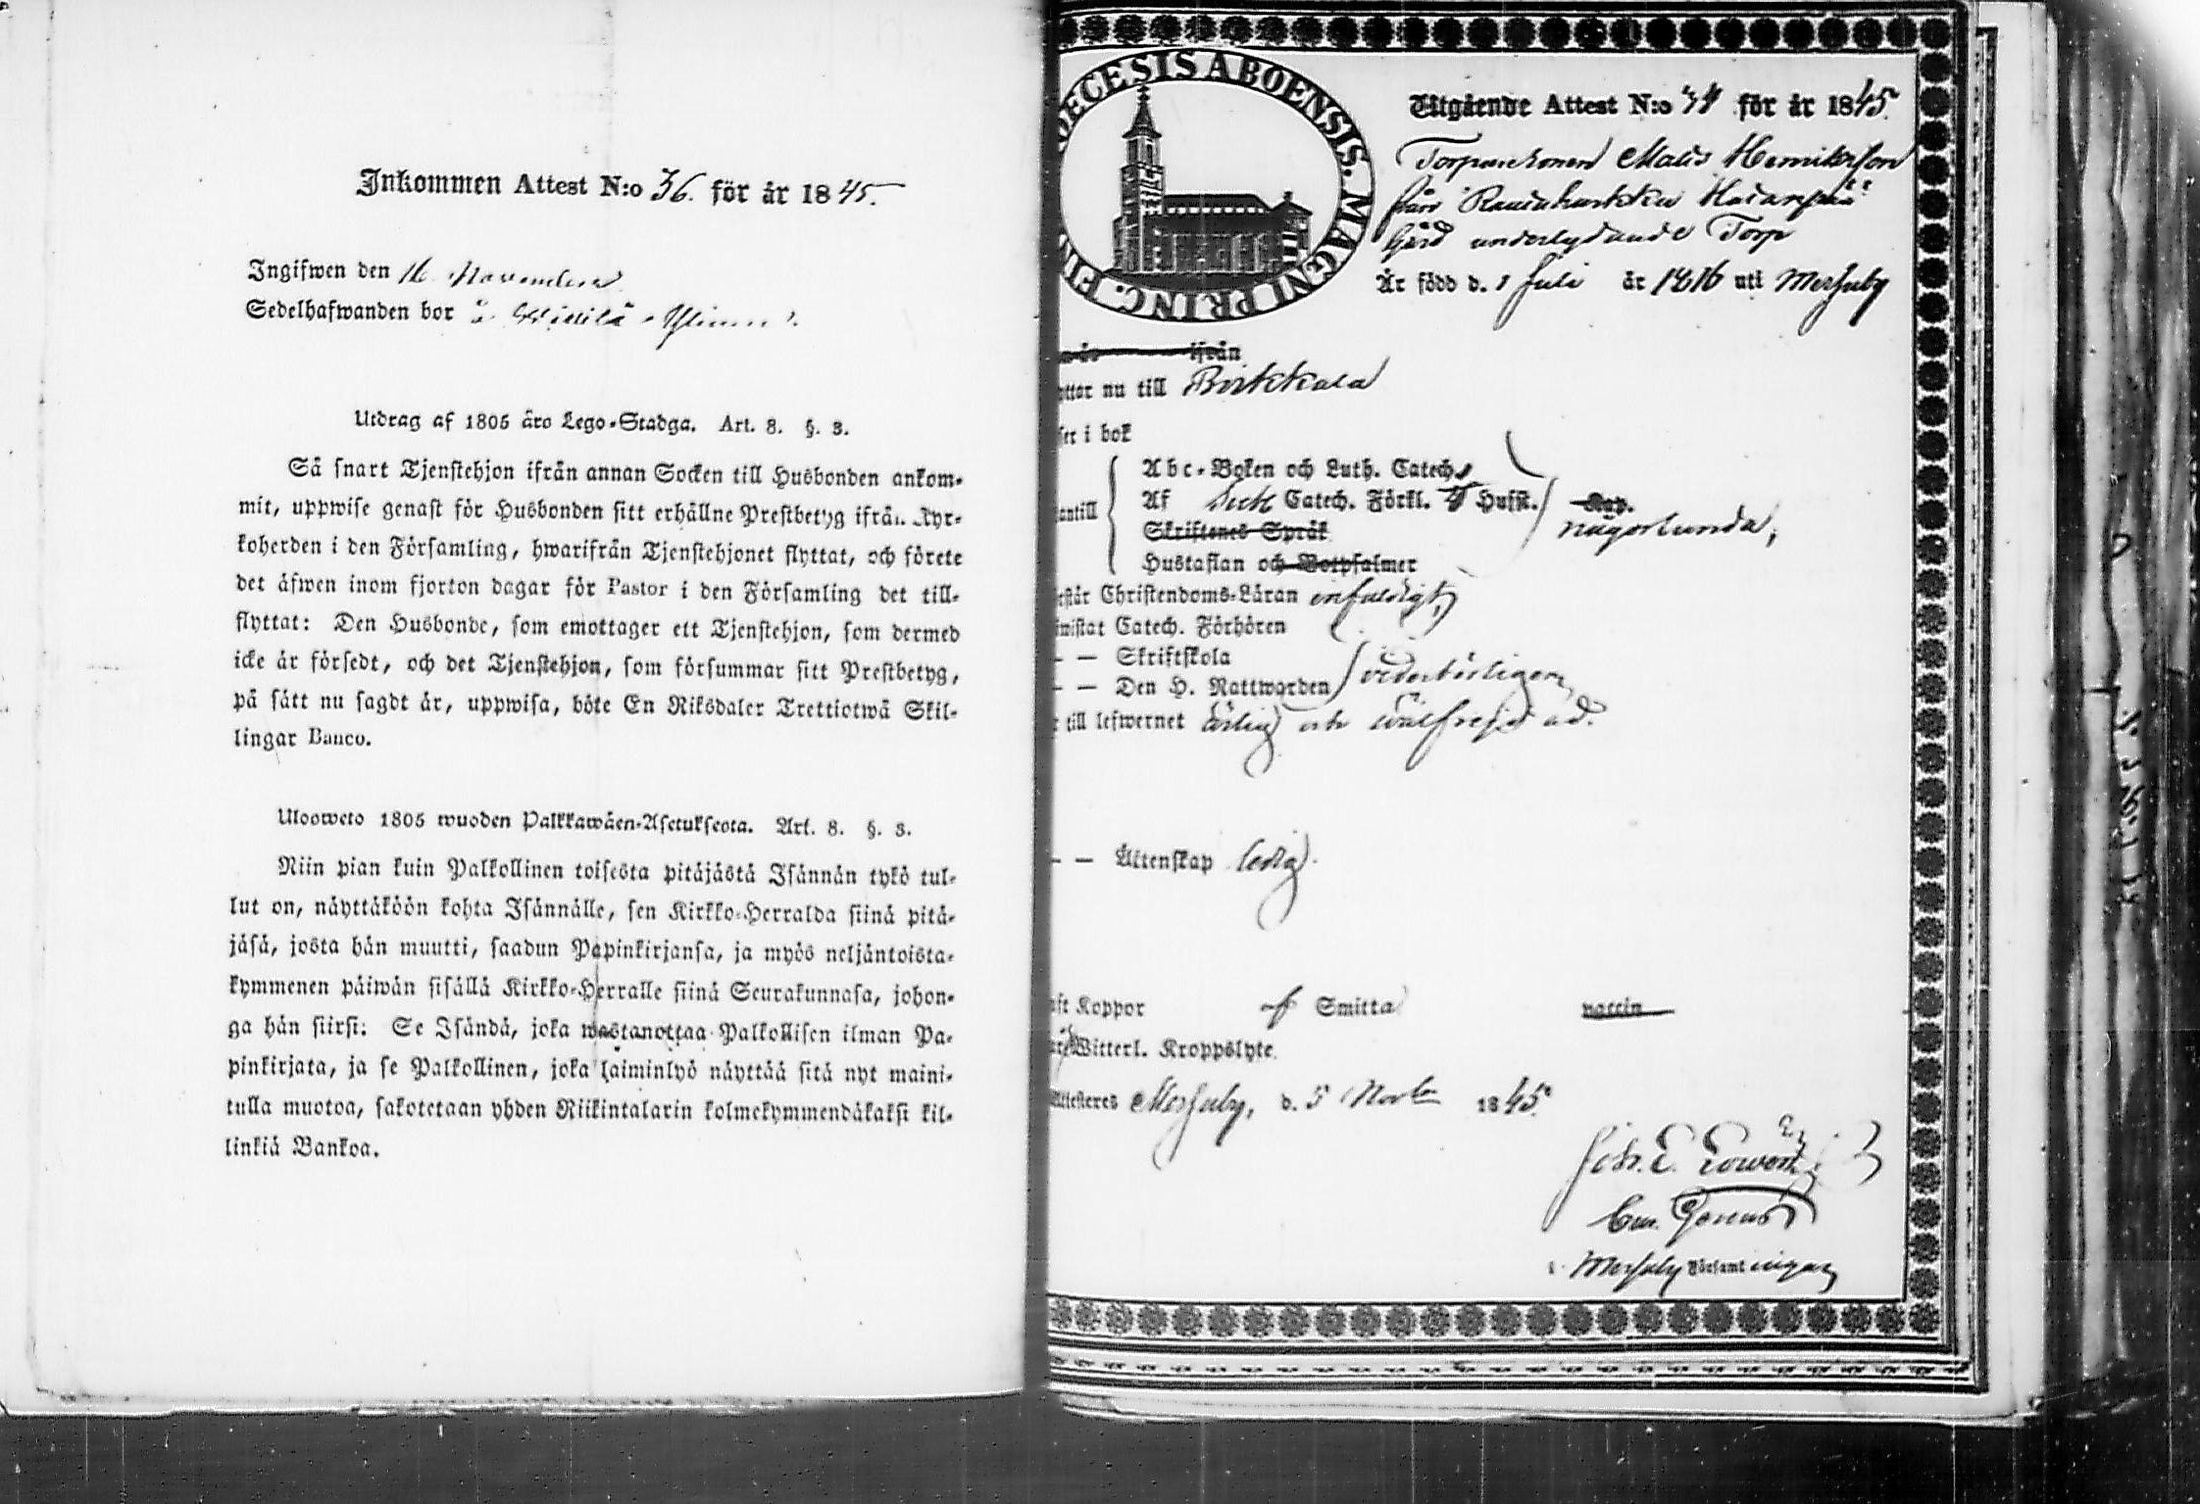 Inkommen Attest N:o 36. för år 1845.
Ingifwen den 16 November
Sedelhafwanden bor å
Utdrag af 1805 års Lego-Stadga. Art. 8. §. 3.
Så snart Tjenstehjon ifrån annan Socken till Husbonden ankom-
mit, uppwise genast för Husbonden sitt erhållne Prestbetyg ifrån Kyr-
koherden i den Församling, hwarifrån Tjenstehjonet flyttat, och förete
det äfwen inom fjorton dagar för Pastor i den Församling det till-
flyttat: Den Husbonde, som emottager ett Tjenstehjon, som dermed
icke är försedt, och det Tjenstehjon, som försummar sitt Prestbetyg,
på sätt nu sagdt är, uppwisa, böte En Riksdaler Trettiotwå Skil-
lingar Banco.
Ulosweto 1805 wuoden Palkkawäen-Asetuksesta. Art. 8. §. 3.
Niin pian kuin Palkollinen toisesta pitäjästä Isännän tykö tul-
lut on, näyttäköön kohta Isännälle, sen Kirkko-Herralda siinä pitä-
jäsä, josta hän muutti, saadun Papinkirjansa, ja myös neljäntoista-
kymmenen päiwän sisällä Kirkko-Herralle siinä Seurakunnasa, johon-
ga hän siirsi: Se Isändä, joka wastanottaa Palkollisen ilman Pa-
pinkirjata, ja se Palkollinen, joka laiminlyö näyttää sitä nyt maini-
tulla muotoa, sakotetaan yhden Riikintalarin kolmekymmendäkaksi kil-
linkiä Bankoa.
OECESIS ABOENSIS. MAGNI PRINC. FIN
Utgående Attest N:o 34 för år 1845.
Matts Henriksson
från
Gård underlydande Torp
Är född d. 1 Juli år 1816 uti Merjuby
ifrån
yttar nu till Birkkala
ser i bok
Abc-Boken och Luth. Catech.
antill
Af Luth Catech. Förkl. Hufst. Kap.
någorlunda,
Skriftenes Språk
Hustaflan och Botpsalmer
rstår Christendoms-Läran enfaldigt,
iwistat Catech. Förhören
– – Skriftskola
– – Den H. Nattwarden wederbörligen,
r till lefwernet ärlig och wälfrejdad.
– – Äktenskap ledig.
aft Koppor af Smitta vaccin
Witterl. Kroppslyte
Attesteres Merjuby, d. 5 Novbr 1845.
Joh. E.
i Merjuby Församlingar